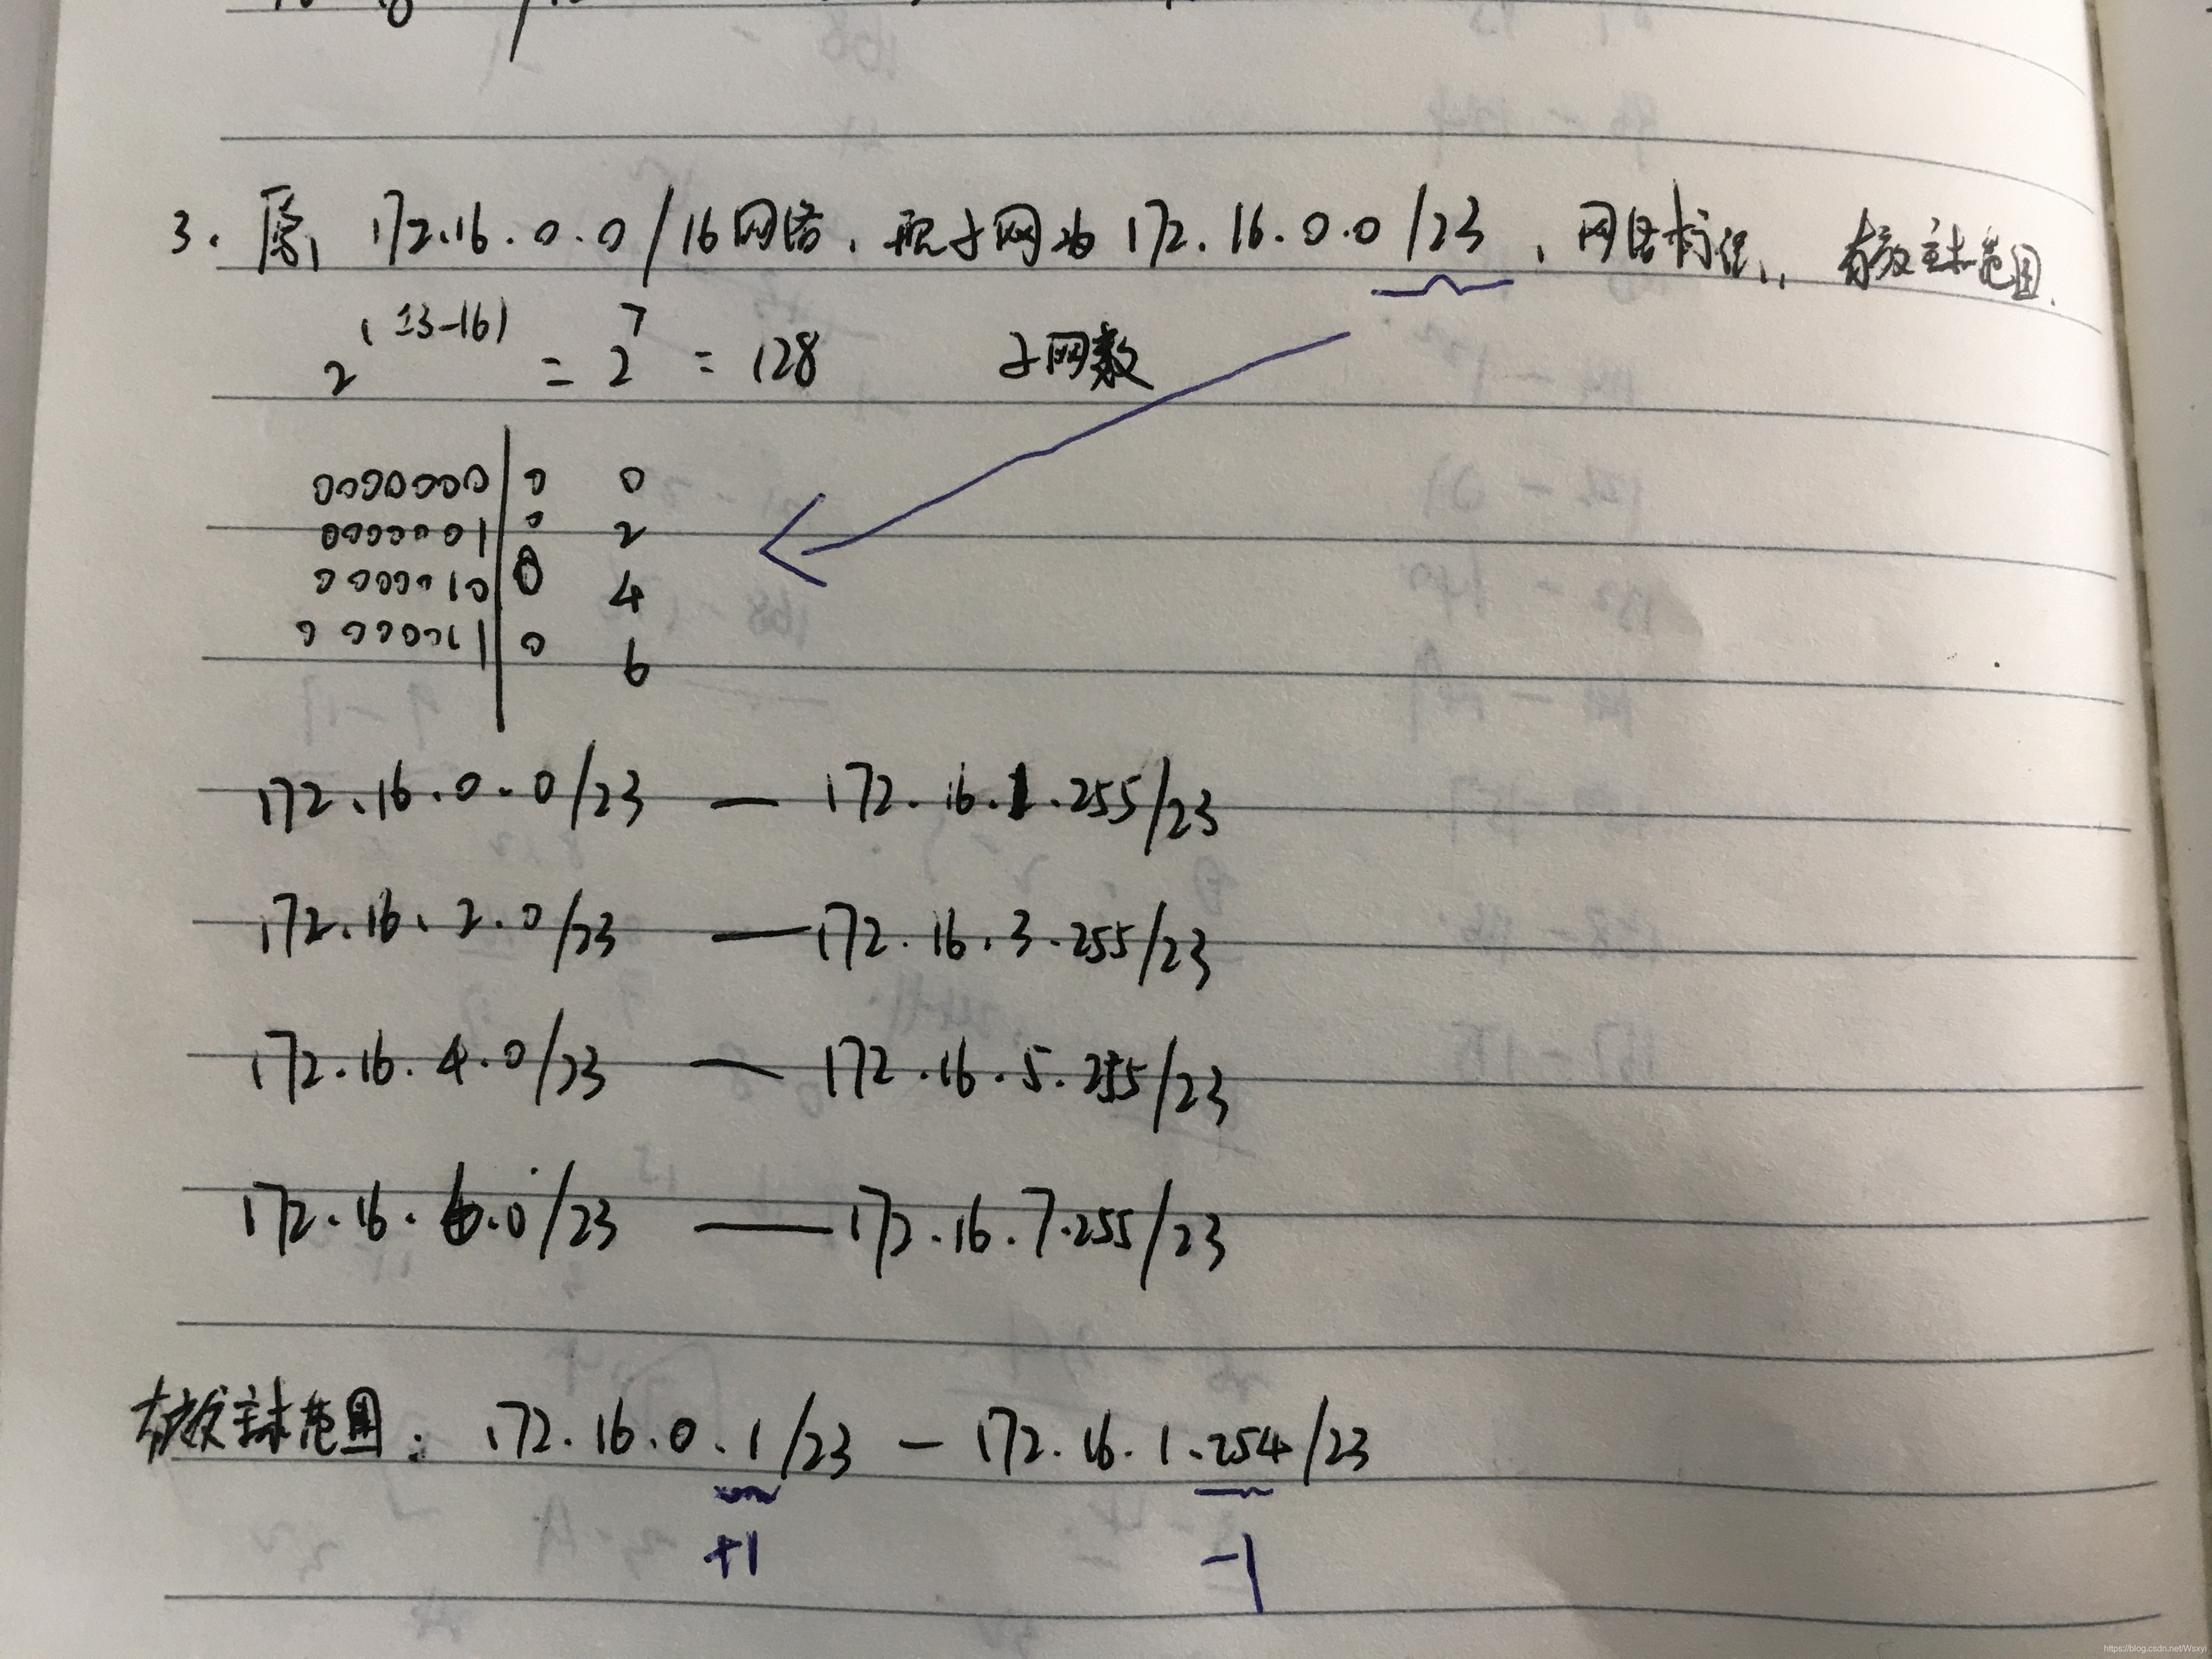 3. 原 172.16.0.0/16网络, 现子网为 172.16.0.0/23, 网络标识, 有效主机范围.
2^(23-16) = 2^7 = 128 子网数
0000000|0 0
0000001|0 2
0000010|0 4
0000011|0 6
172.16.0.0/23 — 172.16.1.255/23
172.16.2.0/23 — 172.16.3.255/23
172.16.4.0/23 — 172.16.5.255/23
172.16.6.0/23 — 172.16.7.255/23
有效主机范围: 172.16.0.1/23 — 172.16.1.254/23
+1 -1
https://blog.csdn.net/Wsxyi